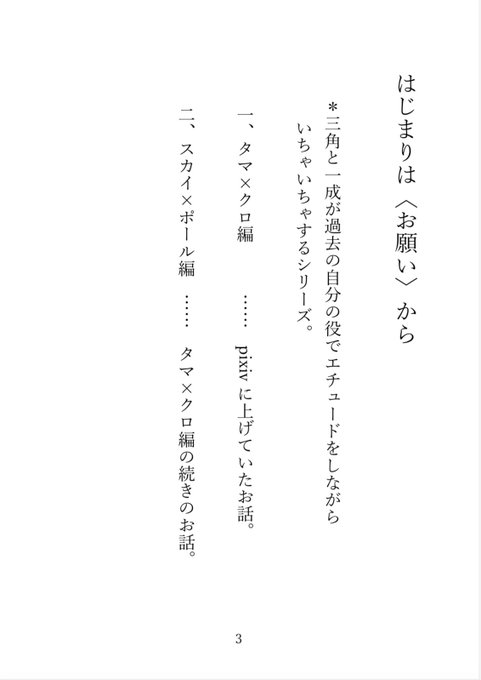 はじまりは〈お願い〉から
＊三角と一成が過去の自分の役でエチュードをしながら
いちゃいちゃするシリーズ。
一、タマ×クロ編　……　pixivに上げていたお話。
二、スカイ×ポール編　……　タマ×クロ編の続きのお話。
3